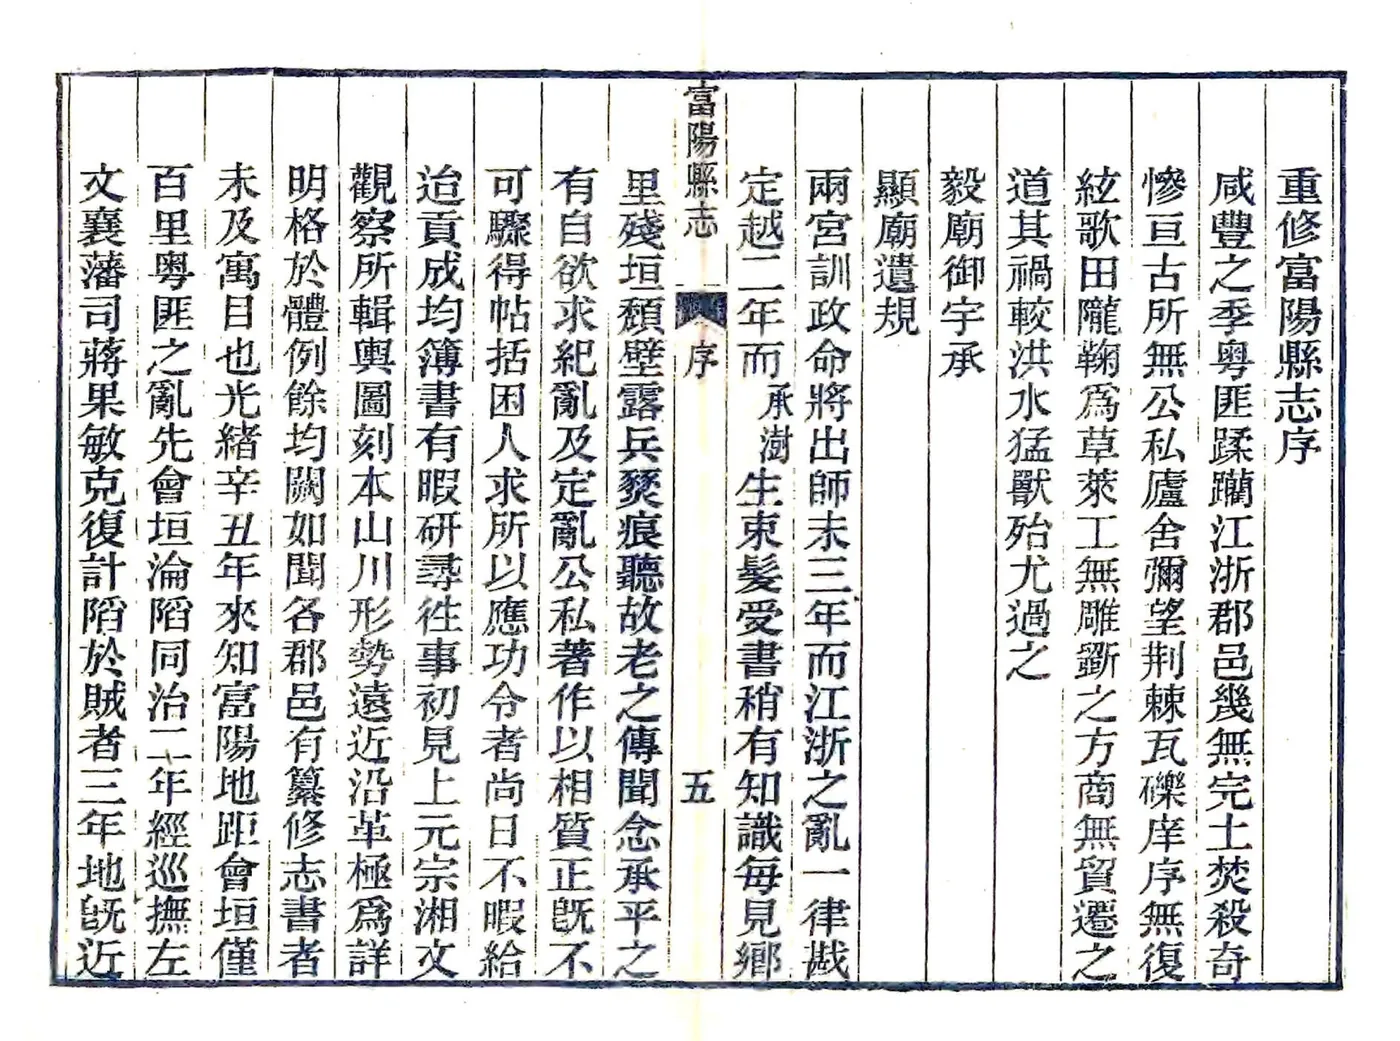 重修富陽縣志序
咸豐之季粵匪蹂躪江浙郡邑幾無完土焚殺奇
慘亘古所無公私廬舍彌望荆棘瓦礫庠序無復
絃歌田隴鞠爲草萊工無雕斵之方商無貿遷之
道其禍較洪水猛獸殆尤過之
毅廟御宇承
顯廟遺規
兩宮訓政命將出師未三年而江浙之亂一律戡
定越二年而承澍生束髮受書稍有知識每見鄉
富陽縣志
序
五
里殘垣頹壁露兵燹痕聽故老之傳聞念承平之
有自欲求紀亂及定亂公私著作以相質正旣不
可驟得帖括困人求所以應功令者尚日不暇給
迨貢成均簿書有暇研尋徃事初見上元宗湘文
觀察所輯輿圖刻本山川形勢遠近沿革極爲詳
明格於體例餘均闕如聞各郡邑有纂修志書者
未及寓目也光緒辛丑年來知富陽地距會垣僅
百里粵匪之亂先會垣淪陷同治二年經巡撫左
文襄藩司蔣果敏克復計陷於賊者三年地旣近